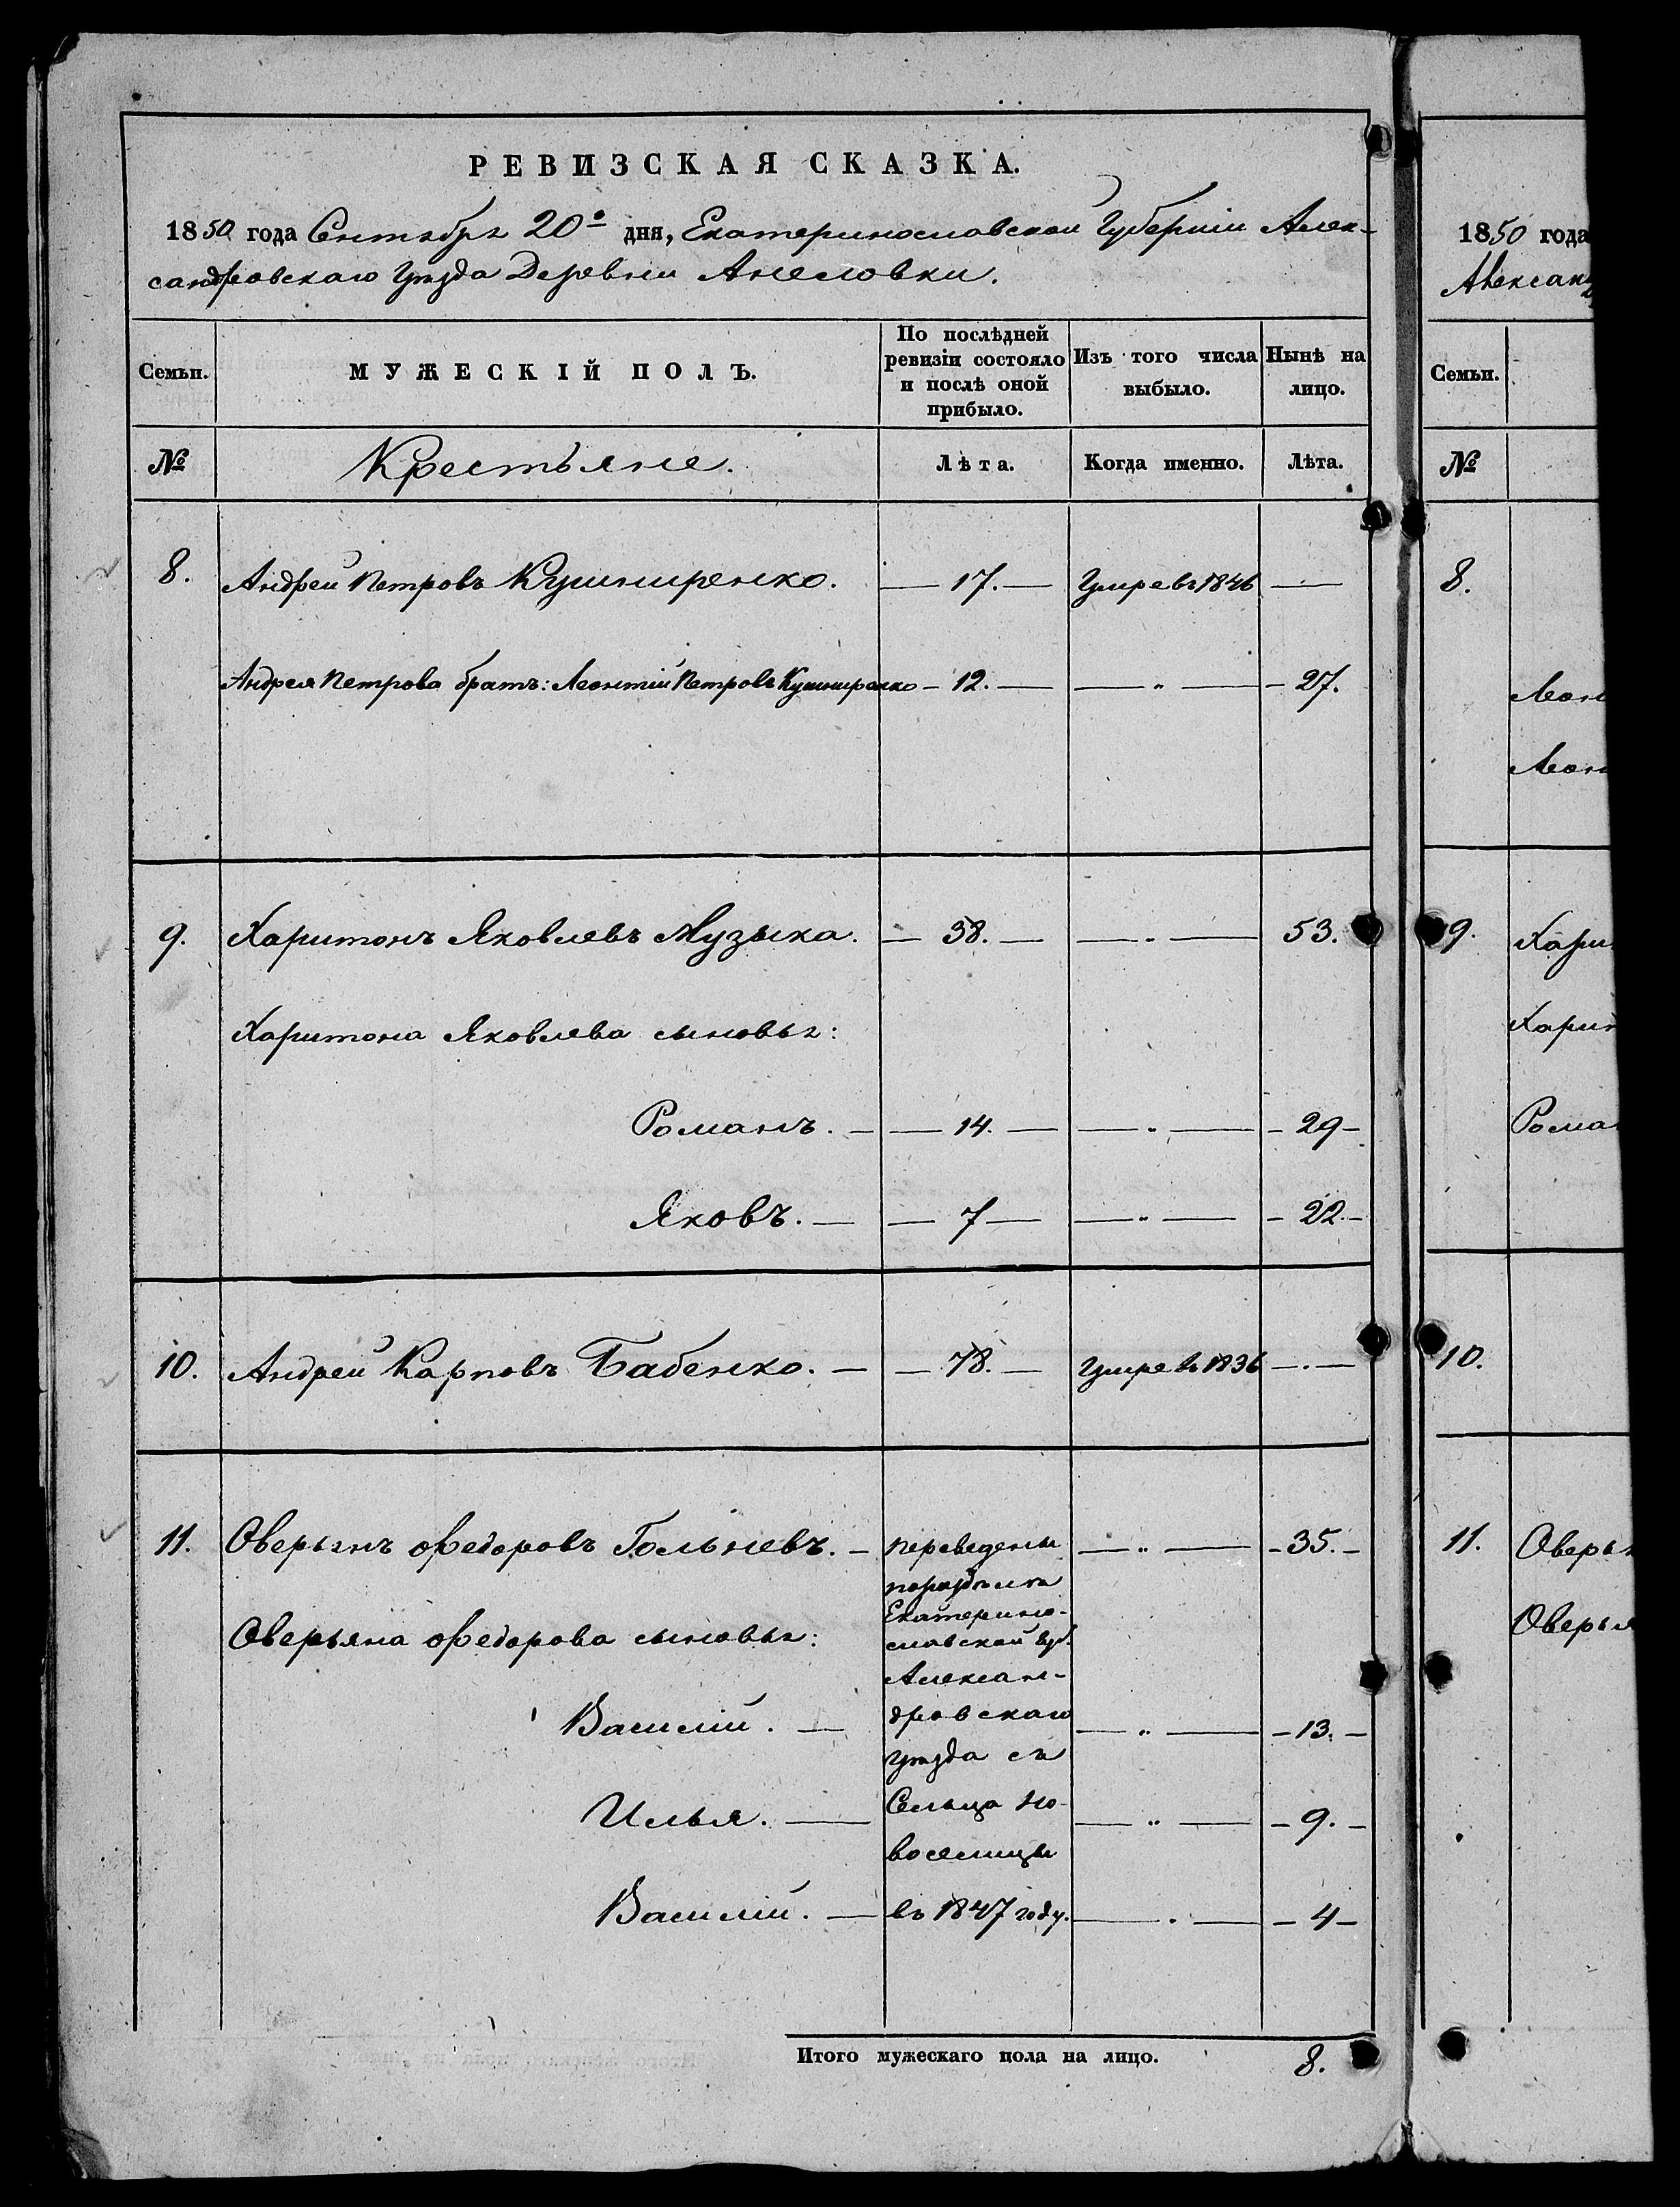 РЕВИЗСКАЯ СКАЗКА.
1850 года Сентября 20го дня, Екатеринославской Губерніи Алек-
сандровскаго Уѣзда Деревни Анеловки.
Семьи.
МУЖЕСКІЙ ПОЛЪ.
По послѣдней ревизіи состояло и послѣ оной прибыло.
Изъ того числа выбыло.
Нынѣ на лицо.
№ Крестьяне. Лѣта. Когда именно. Лѣта.
8. Андрей Петровъ Кушниренко. — 17. — Умре въ 1846 —
Андрея Петрова братъ: Леонтій Петровъ Кушниренко — 12. — — „ — — 27.
9. Харитонъ Яковлевъ Музыка. — 38. — — „ — 53.
Харитона Яковлева сыновья:
Романъ. — — 14. — — „ — — 29 —
Яковъ. — — 7 — — „ — — 22. —
10. Андрей Карповъ Бабенко. — — 78. — Умре въ 1836 — . —
11. Оверьянъ Федоровъ Гольневъ. — переведены — „ — — 35. —
по раздѣлѣ
Екатерино-
Оверьяна Федорова сыновья: славской губ.
Алексан-
Василій. — дровскаго — „ — — 13. —
уѣзда съ
Илья. — Сельца Но- — „ — — 9. —
воселицы
Василій. — въ 1847 году. — „ — — 4 —
Итого мужескаго пола на лицо. 8.
1850 года
Алексан
Семьи.
№
8.
Леон
Леон
9. Хари
Харит
Рома
10.
11. Оверья
Оверья